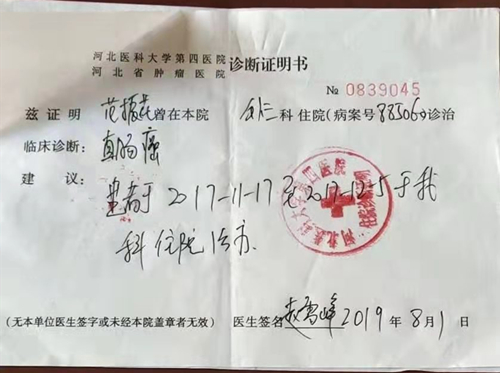 河北医科大学第四医院
河北省肿瘤医院
诊断证明书
№ 0839045
兹证明 范振 曾在本院 外三科住院(病案号88506)诊治
临床诊断: 直肠癌
建议:
患者于2017-11-17至2017-12-5于我
科住院治疗.
河北医科大学第四医院
(无本单位医生签字或未经本院盖章者无效) 医生签名 峰 2019年8月1日